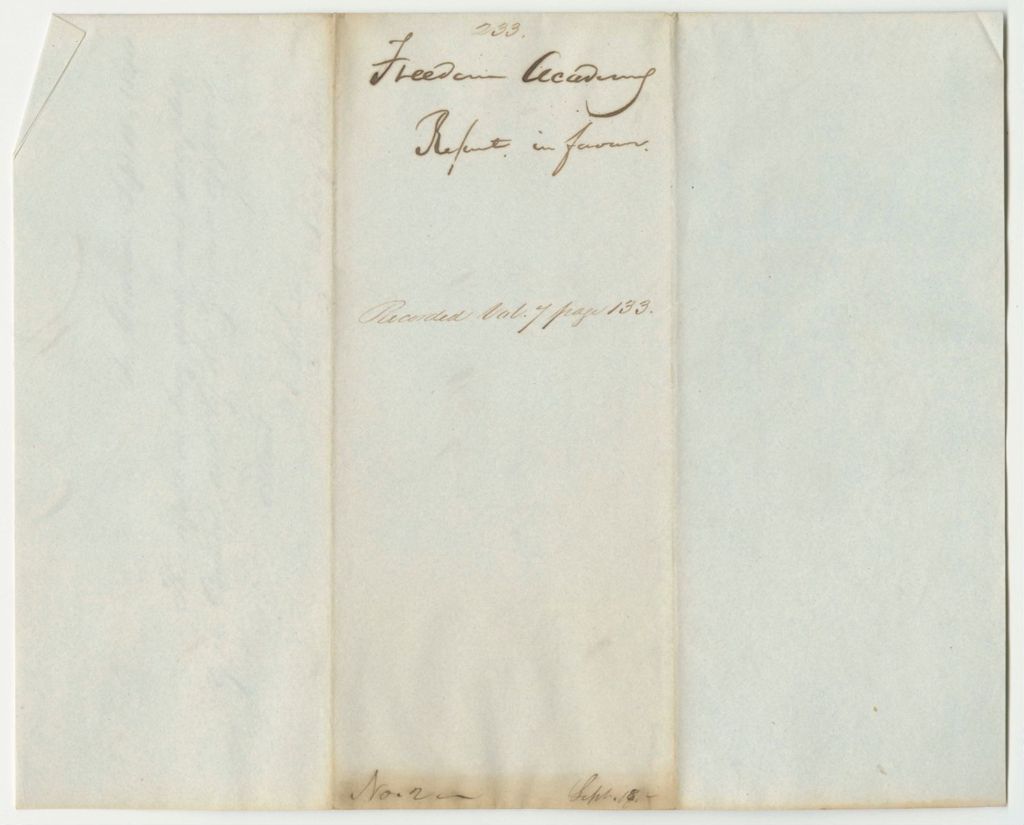 233.
Freedom Academy
Report in favour.
Recorded Vol. 7 page 133.
No. 2 —
Sept. 18. —